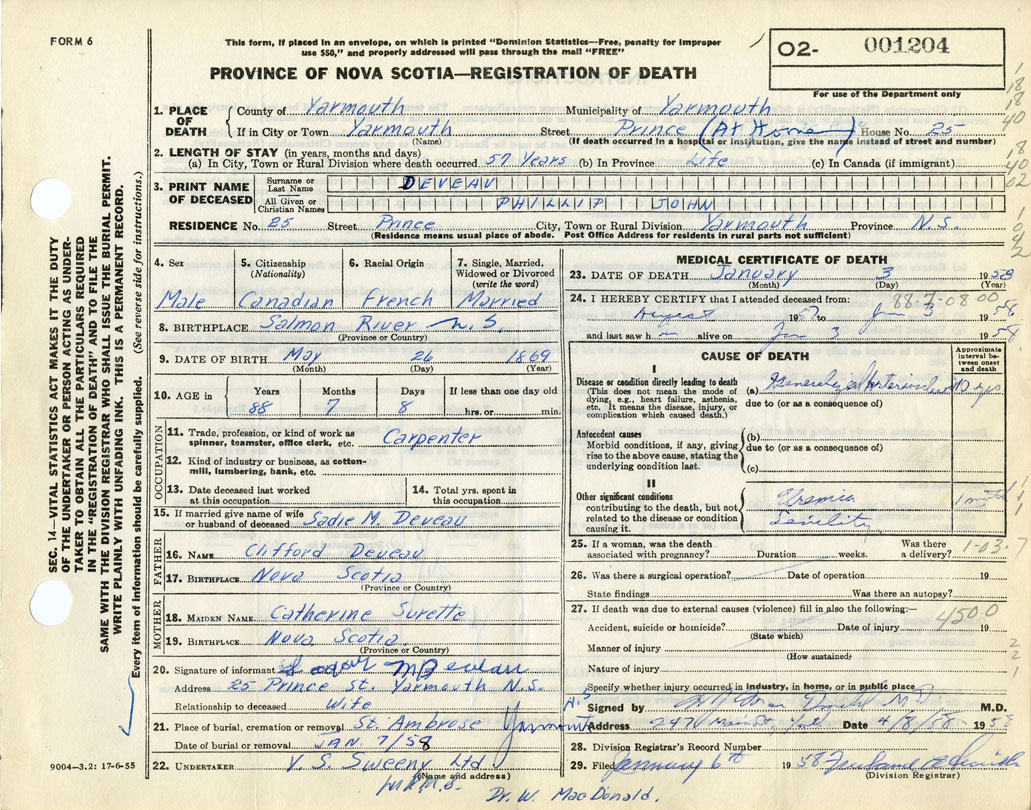 FORM 6
This form, if placed in an envelope, on which is printed "Dominion Statistics—Free, penalty for improper
use $50," and properly addressed will pass through the mail "FREE"
O2- 001204
For use of the Department only
PROVINCE OF NOVA SCOTIA—REGISTRATION OF DEATH
1. PLACE OF DEATH County of Yarmouth Municipality of Yarmouth
If in City or Town Yarmouth Street Prince (At Home) House No. 25
(Name) (If death occurred in a hospital or institution, give the name instead of street and number)
2. LENGTH OF STAY (in years, months and days)
(a) In City, Town or Rural Division where death occurred 57 Years (b) In Province Life (c) In Canada (if immigrant)
3. PRINT NAME OF DECEASED Surname or Last Name DEVEAU
All Given or Christian Names PHILLIP JOHN
RESIDENCE No. 25 Street Prince City, Town or Rural Division Yarmouth Province N.S.
(Residence means usual place of abode. Post Office Address for residents in rural parts not sufficient)
4. Sex Male
5. Citizenship (Nationality) Canadian
6. Racial Origin French
7. Single, Married, Widowed or Divorced (write the word) Married
8. BIRTHPLACE Salmon River N.S
(Province or Country)
9. DATE OF BIRTH May 26 1869
(Month) (Day) (Year)
10. AGE in Years 88 Months 7 Days 8 If less than one day old hrs. or min.
OCCUPATION
11. Trade, profession, or kind of work as spinner, teamster, office clerk, etc. Carpenter
12. Kind of industry or business, as cotton-mill, lumbering, bank, etc.
13. Date deceased last worked at this occupation
14. Total yrs. spent in this occupation
15. If married give name of wife or husband of deceased Sadie M. Deveau
FATHER
16. NAME Clifford Deveau
17. BIRTHPLACE Nova Scotia
(Province or Country)
MOTHER
18. MAIDEN NAME Catherine Surette
19. BIRTHPLACE Nova Scotia
(Province or Country)
20. Signature of informant M Deveau
Address 25 Prince St. Yarmouth N.S.
Relationship to deceased Wife
21. Place of burial, cremation or removal St. Ambrose Yarmouth N.S
Date of burial or removal JAN. 7/58
22. UNDERTAKER V. S. Sweeny Ltd
(Name and address)
MEDICAL CERTIFICATE OF DEATH
23. DATE OF DEATH January 3 1958
(Month) (Day) (Year)
88-7-08 00
24. I HEREBY CERTIFY that I attended deceased from:
August 1957 to Jan 3 1958
and last saw h m alive on Jan 3 1958
CAUSE OF DEATH
Approximate interval between onset and death
I
Disease or condition directly leading to death
(This does not mean the mode of dying, e.g., heart failure, asthenia, etc. It means the disease, injury, or complication which caused death.)
(a) Generalized
due to (or as a consequence of)
Antecedent causes
Morbid conditions, if any, giving rise to the above cause, stating the underlying condition last.
(b)
due to (or as a consequence of)
(c)
II
Other significant conditions
contributing to the death, but not related to the disease or condition causing it.
Uremia
Senility
25. If a woman, was the death associated with pregnancy? Duration weeks. Was there a delivery?
1-03.7
26. Was there a surgical operation? Date of operation 19
State findings Was there an autopsy?
27. If death was due to external causes (violence) fill in also the following:—
4500
Accident, suicide or homicide? Date of injury 19
(State which)
Manner of injury
(How sustained)
Nature of injury
Specify whether injury occurred in industry, in home, or in public place
Signed by M.D.
Address 247 Main St Date 4/8/58 1958
28. Division Registrar's Record Number
29. Filed January 6th 1958
(Division Registrar)
Dr. W. MacDonald.
SEC. 14—VITAL STATISTICS ACT MAKES IT THE DUTY
OF THE UNDERTAKER OR PERSON ACTING AS UNDER-
TAKER TO OBTAIN ALL THE PARTICULARS REQUIRED
IN THE "REGISTRATION OF DEATH" AND TO FILE THE
SAME WITH THE DIVISION REGISTRAR WHO SHALL ISSUE THE BURIAL PERMIT.
WRITE PLAINLY WITH UNFADING INK. THIS IS A PERMANENT RECORD.
Every item of information should be carefully supplied. (See reverse side for instructions.)
9004—3.2: 17-6-55